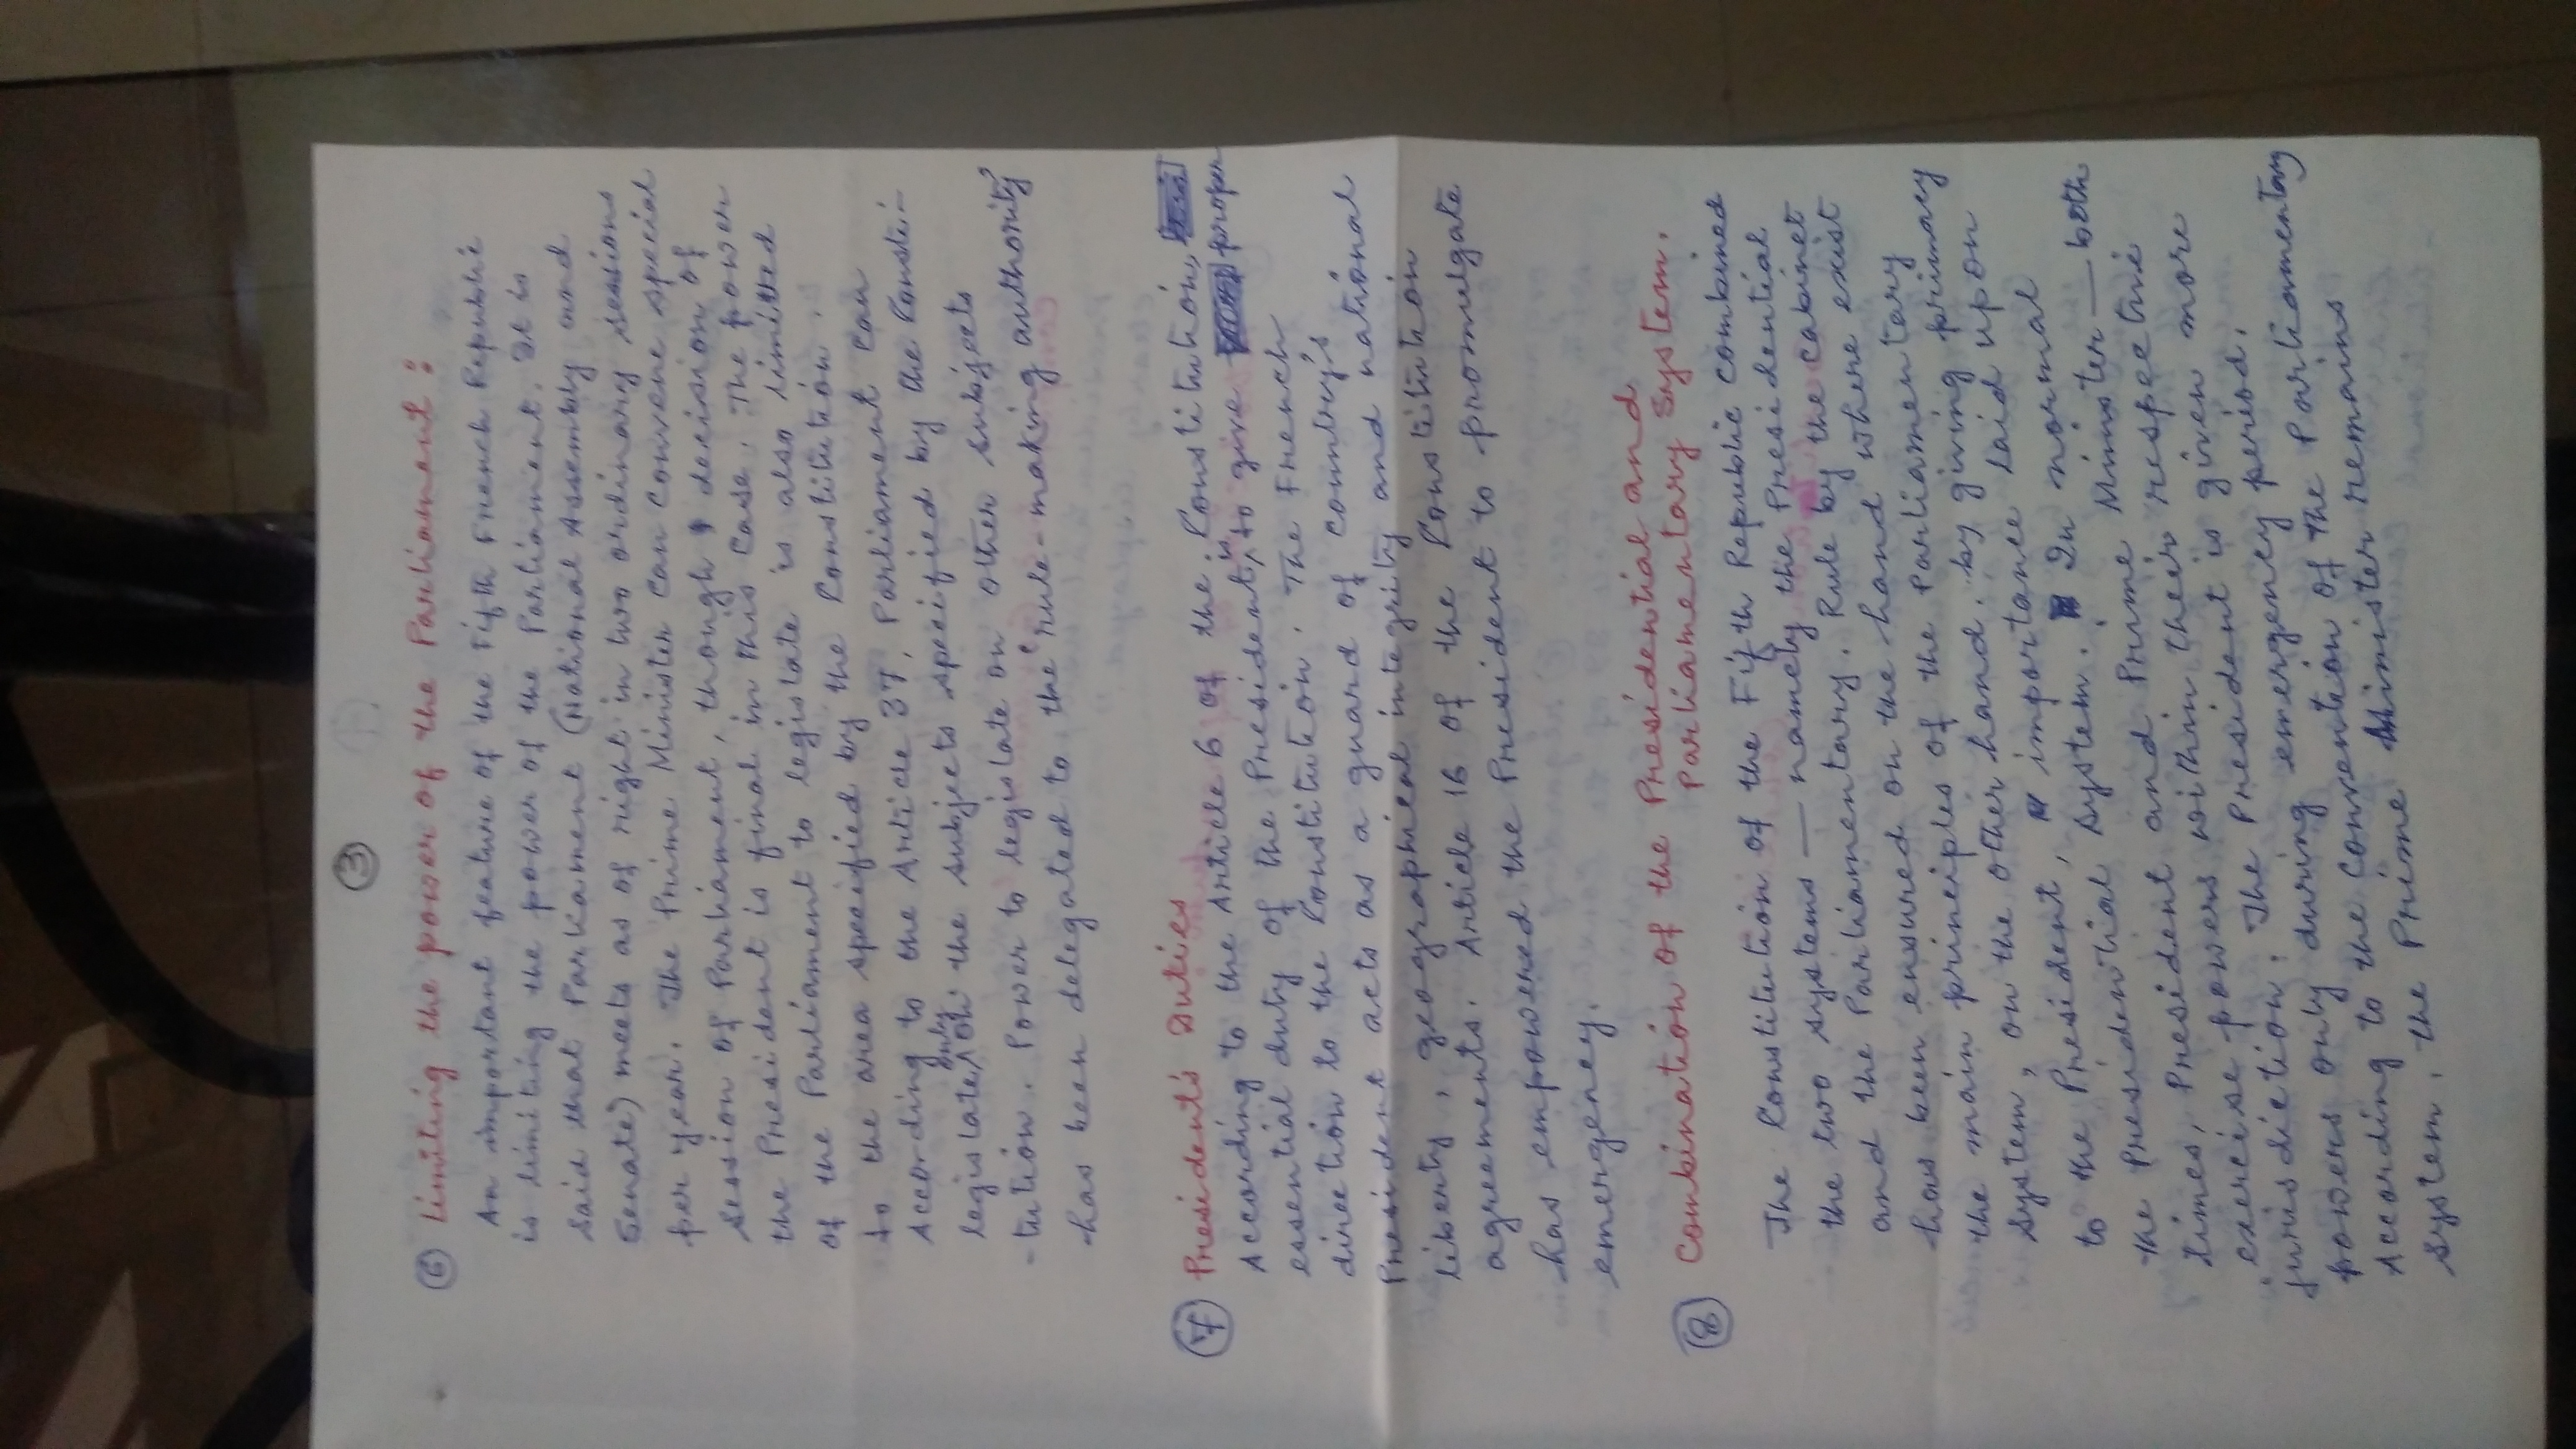 ③
⑥ Limiting the power of the Parliament :
An important feature of the Fifth French Republic
is limiting the power of the Parliament. It is
said that Parliament (National Assembly and
Senate) meets as of right in two ordinary sessions
per year. The Prime Minister can convene special
session of Parliament, though decision of
the President is final in this case. The power
of the Parliament to legislate is also limited
to the area specified by the Constitution.
According to the Article 37, Parliament can
legislate only on the subjects specified by the Consti-
-tution. Power to legislate on other subjects
has been delegated to the 'rule-making authority'
⑦ President's Duties
According to the Article 6 of the Constitution,
essential duty of the President is to give proper
direction to the Constitution. The French
President acts as a guard of country's
liberty, geographical integrity and national
agreements. Article 16 of the Constitution
has empowered the President to promulgate
emergency.
⑧ Combination of the Presidential and
Parliamentary System.
The Constitution of the Fifth Republic combined
the two systems — namely the Presidential
and the Parliamentary. Rule by the cabinet
has been ensured on the hand where exist
the main principles of the Parliamentary
system, on the other hand, by giving primacy
to the President, importance laid upon
the Presidential system. In normal
times, President and Prime Minister — both
exercise powers within their respective
jurisdiction. The President is given more
powers only during emergency period.
According to the convention of the Parliamentary
system, the Prime Minister remains